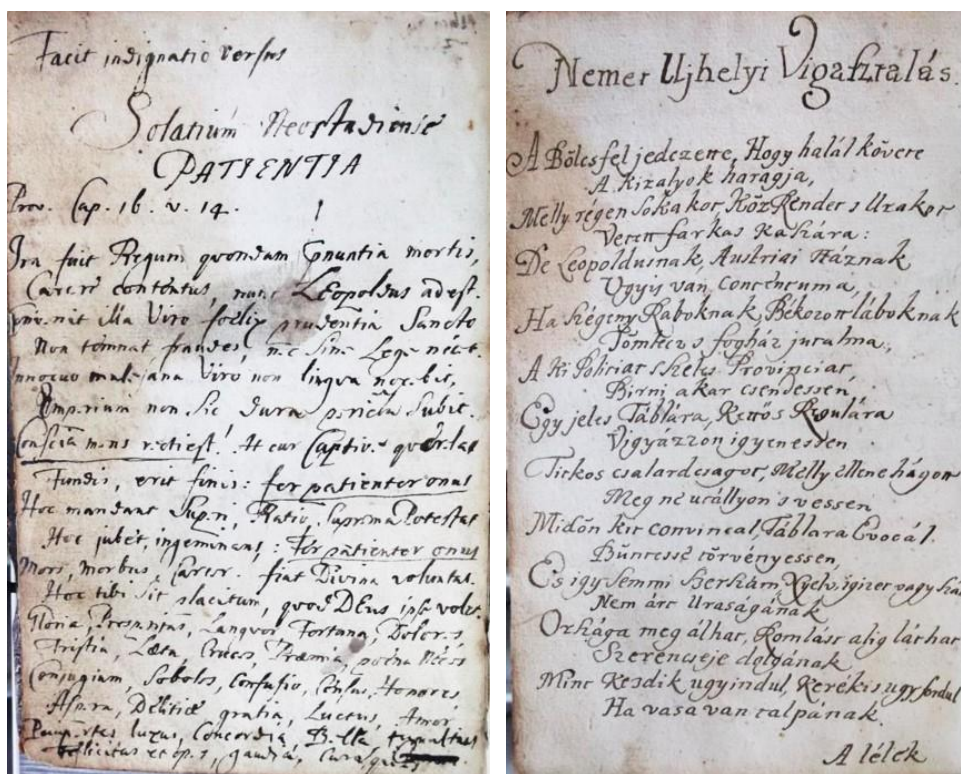 Facit indignatio versus
Solatium Neostadiense
PATIENTIA
Prov. Cap. 16. v. 14.
Ira fuit Regum quondam mortis,
Carcere contentus, nunc Leopoldus adest.
illa Viro foelix prudentia Sancto
Non temnat fraudes, nec Sine Lege necet.
Innocuo malesana Viro non lingua nocebit,
Imperium non Sic dura pericla Subit.
Conscia mens recti est! At cur Captive querelas
Fundis, erit finis: fer patienter onus
Hoc mandant Superi, Ratio, Suprema Potestas
Hoc jubet, ingeminans: Fer patienter onus
Mors, morbus, Carcer. fiat Divina voluntas.
Hoc tibi Sit placitum, quod DEus ipse volet.
Gloria, Langvor, Fortuna, Dolores
Tristia, Læta, Cruces, Præmia, poena Neces
Conjugium, Soboles, Confusio, Census, Honores
Aspera, Delitiæ gratia, Luctus, Amor.
Paupertas luxus, Concordia, Bella
Felicitas et opes, gaudia, Cura
Nemet Ujhelyi Vigasztalás.
A Bölcs fel jedezette, Hogy halál követe
A Kizalyok haragja,
Melly régen Sokakot, Köz Rendet s Urakot
Vetett farkas Kaszára:
De Leopoldusnak, Austriai Háznak
Ugyis van Contentuma,
Ha Szegény Raboknak, Békozott láboknak
Tömlecz s fogház jutalma,
A ki Policiat s Szeles Provinciat
Birni akar csendessen,
Egy jeles Táblára, Kettős Regulára
Vigyázzon igyenessen
Titkos csalardságot, Melly ellene hágott
Meg ne utállyon s vessen
Midőn kit convincal, Táblara Evocál.
Büntesse törvényessen,
Es igy Semmi Szerszám, Nyelv, igizet vagy
Nem árt Uraságának
Orszaga meg álhat, Romlást alig láthat
Szerencseje dolgának
Mint Kezdik ugy indul, Kerék is ugy fordul
Ha vasa van talpának.
A lélek